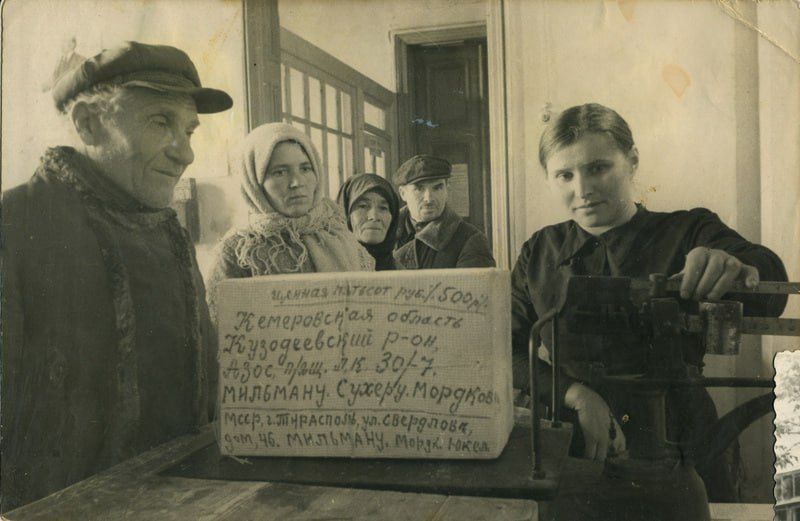 Ценная пятьсот руб./. 500р.
Кемеровская область
Кузодеевский р-он,
Азос, п/ящ. Л.К. 30/-7,
МИЛЬМАНУ. Сухеру. Мордков
Мсср, г. Тирасполь, ул. Свердлова,
дом, 46. МИЛЬМАНУ. Морд. Юкел